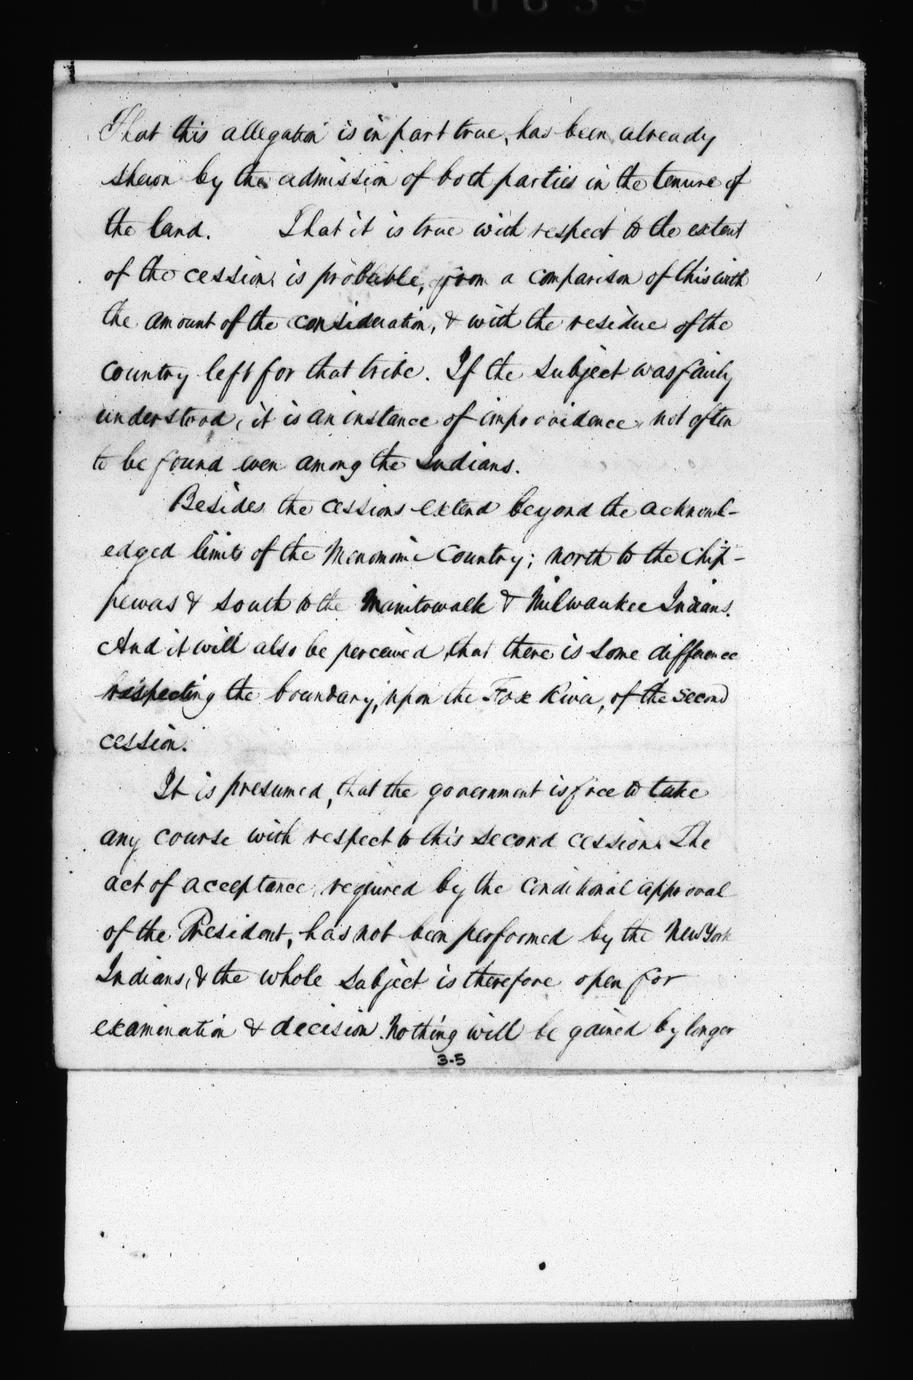 That this allegation is in part true, has been already
shewn by the admission of both parties in the tenure of
the land. That it is true with respect to the extent
of the cession, is probable, from a comparison of this with
the amount of the consideration, & with the residue of the
country left for that tribe. If the subject was fairly
understood, it is an instance of improvidence, not often
to be found even among the Indians.
Besides the cessions extend beyond the acknowl-
edged limits of the Menomonie Country; north to the Chip-
pewas & South to the Manitowalk & Milwaukee Indians.
And it will also be perceived, that there is some difference
respecting the boundary, upon the Fox River, of the second
cession.
It is presumed, that the government is free to take
any course with respect to this second cession. The
act of acceptance, required by the conditional approval
of the President, has not been performed by the New York
Indians, & the whole subject is therefore open for
examination & decision. Nothing will be gained by longer
3-5